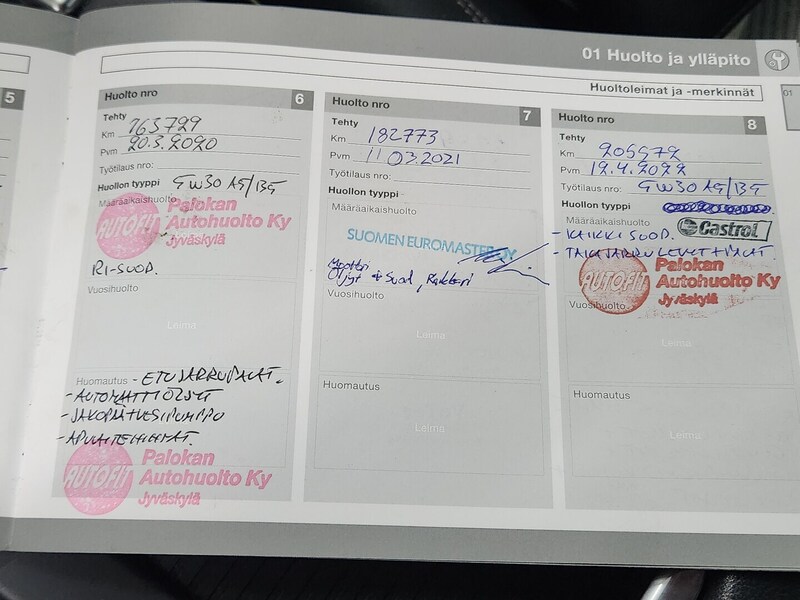 01 Huolto ja ylläpito
Huoltoleimat ja -merkinnät
01
5
Huolto nro 6
Tehty
Km 163729
Pvm 20.3.2020
Työtilaus nro:
Huollon tyyppi 5W30 A5/B5
Määräaikaishuolto
AUTOFIT Palokan
Autohuolto Ky
Jyväskylä
RI-SUOD.
Vuosihuolto
Leima
Huomautus - ETUJARRUPALAT.
- AUTOMAATTIÖLJYT
- JAKOPÄÄ + VESIPUMPPU
- APULAITEHIHNAT.
AUTOFIT Palokan
Autohuolto Ky
Jyväskylä
Huolto nro 7
Tehty
Km 182773
Pvm 11 03.2021
Työtilaus nro:
Huollon tyyppi
Määräaikaishuolto
SUOMEN EUROMASTER OY
Moottori
Öljyt & Suod, Raitisari
Vuosihuolto
Leima
Huomautus
Leima
Huolto nro 8
Tehty
Km 205972
Pvm 19.4.2022
Työtilaus nro: 5W30 A5/B5
Huollon tyyppi
Määräaikaishuolto
Castrol
- KAIKKI SUOD.
- TAKAJARRULEVYT + PALAT
AUTOFIT Palokan
Autohuolto Ky
Jyväskylä
Vuosihuolto
Leima
Huomautus
Leima